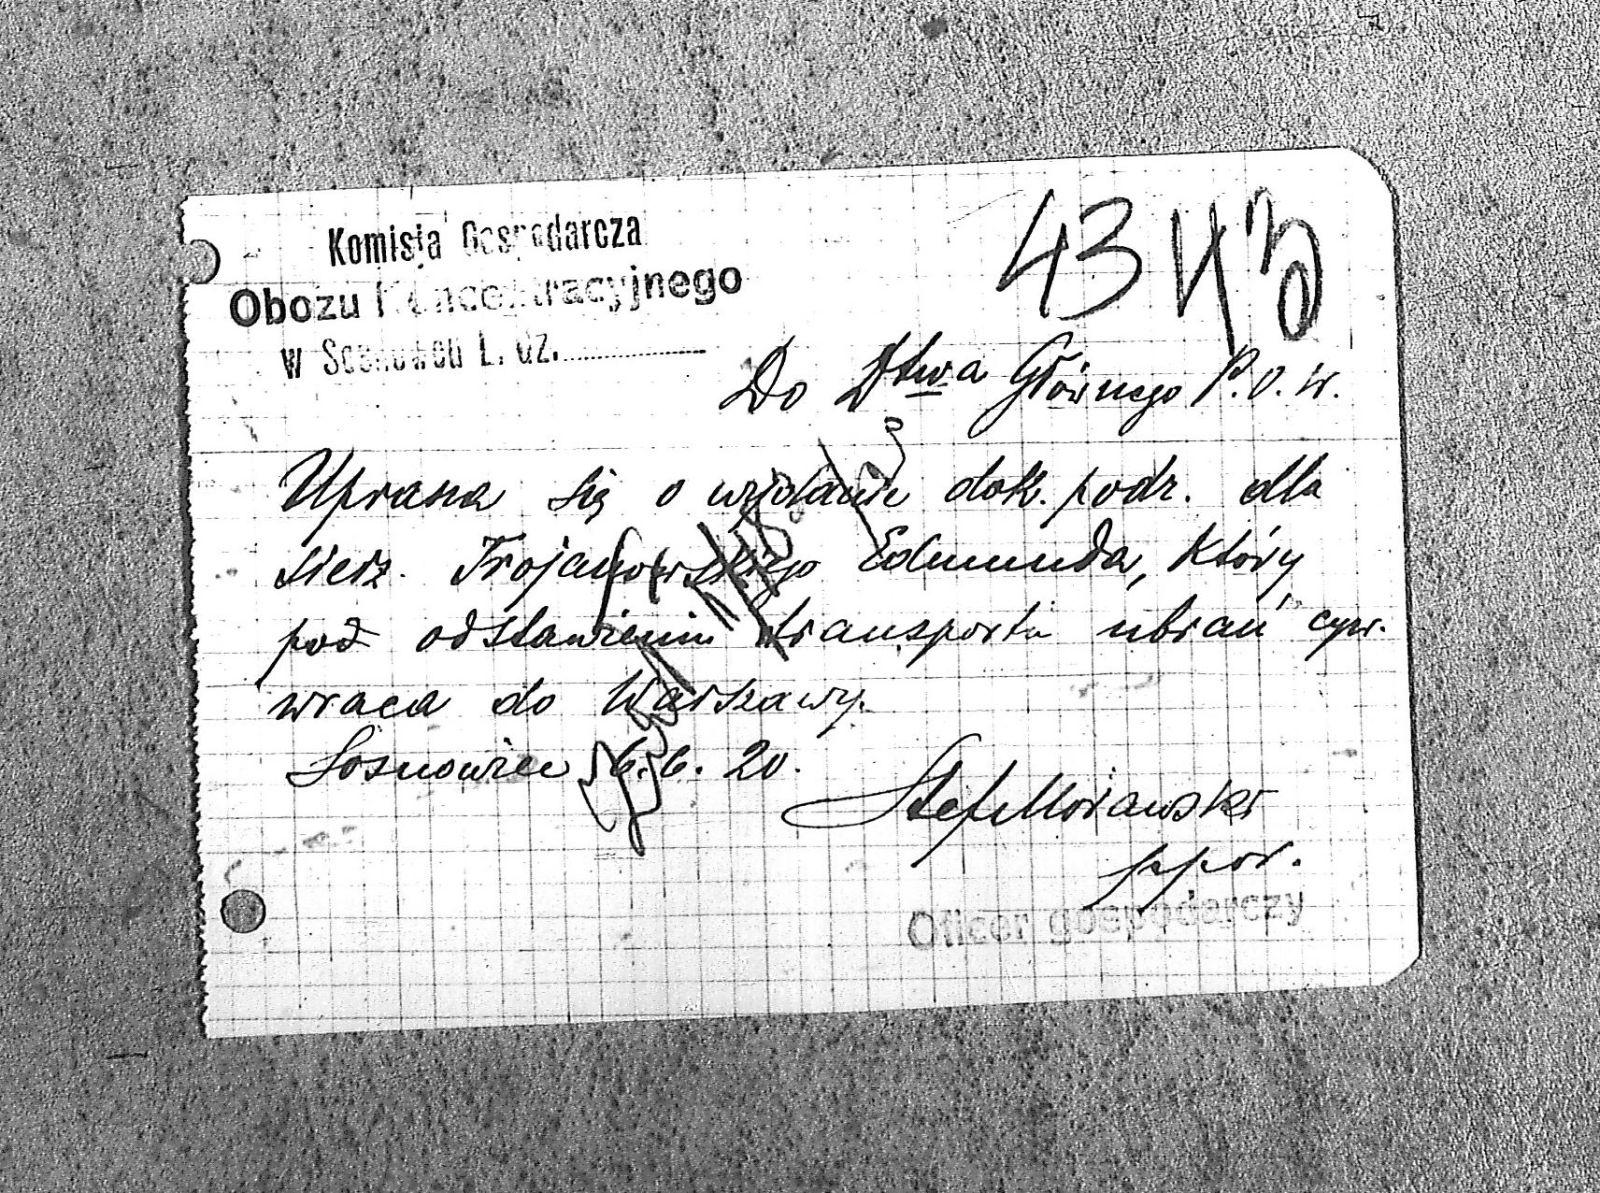 Komisja Gospodarcza
Obozu Koncentracyjnego
w Sosnowcu L. dz.
43 43
Do Dtwa Głównego P.O.W.
Uprasza się o wydanie dok. podr. dla
sierz. Trojanowskiego Edmunda, który
pod odstawieniu transportu ubrań cyw.
wraca do Warszawy.
Sosnowiec 16.6.20.
Stef Morawski
ppor.
Oficer gospodarczy